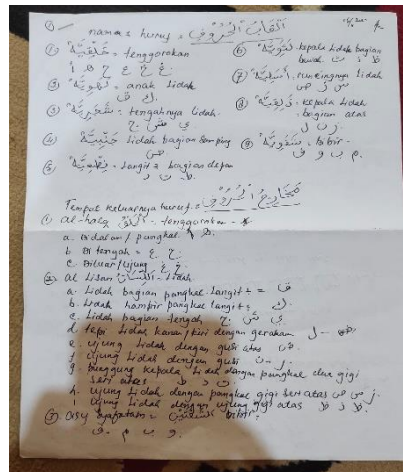 namas huruf = أَلْقَابُ الْحُرُوْفِ
① حَلْقِيَّةٌ = tenggorokan
ء ه ع ح غ خ
② لَهَوِيَّةٌ = anak lidah
ق ك
③ شَجَرِيَّةٌ = tengahnya lidah
ج ش ي
④ جَنْبِيَّةٌ lidah bagian samping
ض
⑤ نِطْعِيَّةٌ = langit2 bagian depan
ط د ت
⑥ kepala lidah bagian
bawah ظ ذ ث
⑦ أَسَلِيَّةٌ runcingnya lidah
ص س ز
⑧ ذَلْقِيَّةٌ = kepala lidah
bagian atas
ل ن ر
⑨ شَفَوِيَّةٌ bibir
ف و ب م
Tempat keluarnya huruf = مَخَارِجُ الْحُرُوْفِ
① al-halq الْحَلْقُ = tenggorokan
a. Didalam / pangkal
b Ditengah = ع ح
c. Diluar/ujung غ خ
② al Lisan اللِّسَانُ Lidah
a. Lidah bagian pangkal langit2 = ق
b. Lidah hampir pangkal langit2 ك
c. Lidah bagian tengah ج ش ي
d. tepi lidah kanan/kiri dengan gerakan ض - ل
e. ujung lidah dengan gusi atas
f ujung lidah dengan gusi ن - ر
g. punggung kepala lidah dengan pangkal dua gigi
seri atas ط د ت
h. ujung lidah dengan pangkal gigi seri atas ص س ز
i ujung lidah dengan ujung gigi atas ظ ذ ث
③ asy syafatain = الشَّفَتَيْنِ bibir
و ب م ف